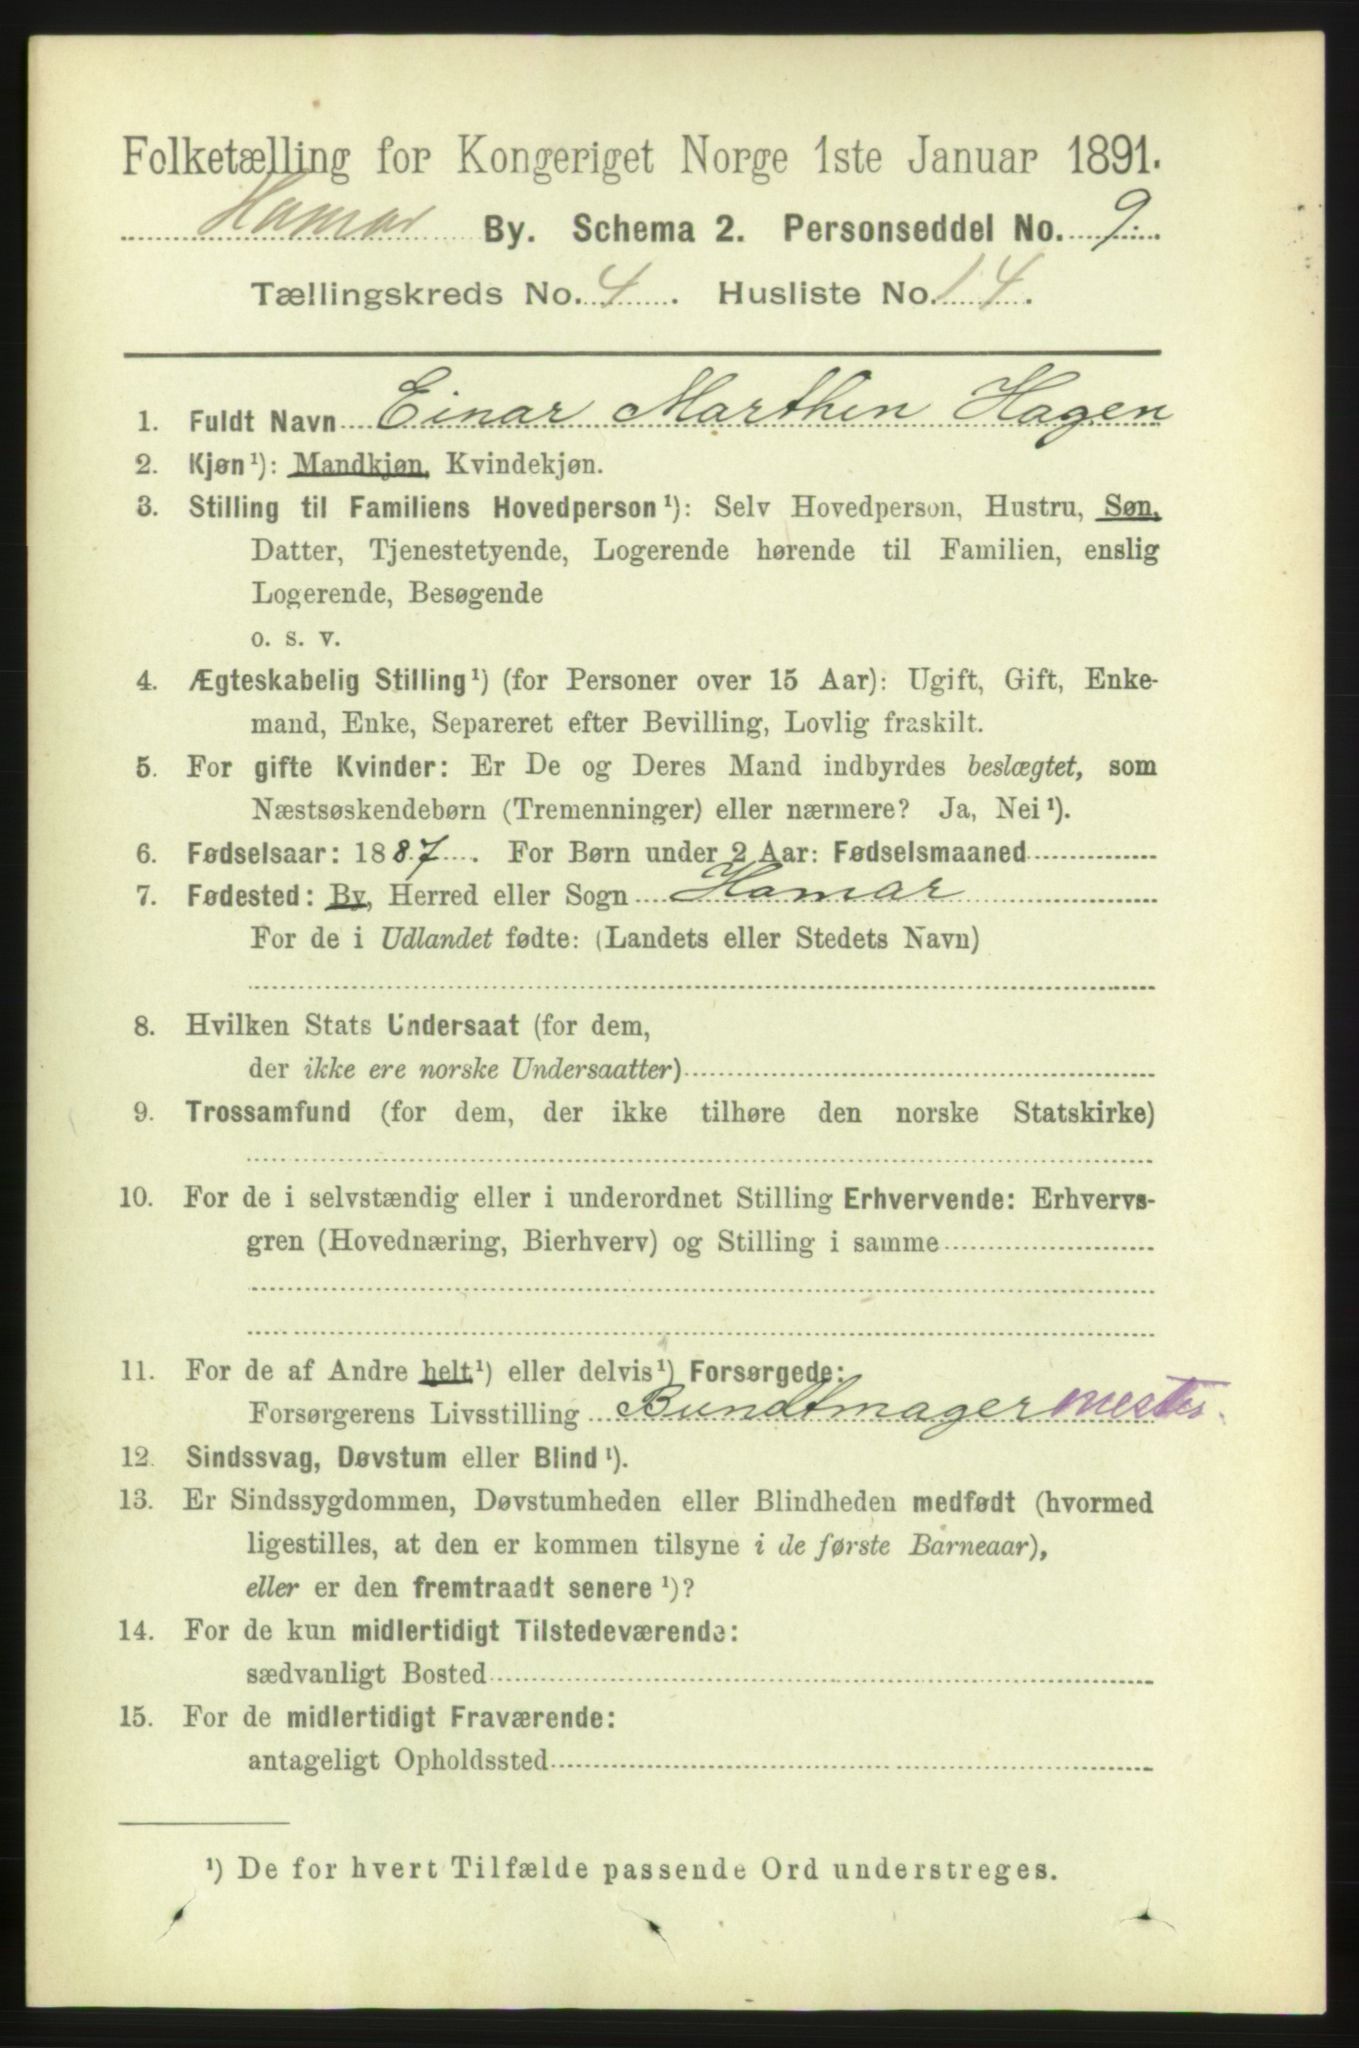 Folketælling for Kongeriget Norge 1ste Januar 1891.
Hamar By. Schema 2. Personseddel No. 9.
Tællingskreds No. 4. Husliste No. 14.
1. Fuldt Navn Einar Marthin Hagen
2. Kjøn¹): Mandkjøn, Kvindekjøn.
3. Stilling til Familiens Hovedperson¹): Selv Hovedperson, Hustru, Søn,
Datter, Tjenestetyende, Logerende hørende til Familien, enslig
Logerende, Besøgende
o. s. v.
4. Ægteskabelig Stilling¹) (for Personer over 15 Aar): Ugift, Gift, Enke-
mand, Enke, Separeret efter Bevilling, Lovlig fraskilt.
5. For gifte Kvinder: Er De og Deres Mand indbyrdes beslægtet, som
Næstsøskendebørn (Tremenninger) eller nærmere? Ja, Nei¹).
6. Fødselsaar: 1887. For Børn under 2 Aar: Fødselsmaaned
7. Fødested: By, Herred eller Sogn Hamar
For de i Udlandet fødte: (Landets eller Stedets Navn)
8. Hvilken Stats Undersaat (for dem,
der ikke ere norske Undersaatter)
9. Trossamfund (for dem, der ikke tilhøre den norske Statskirke)
10. For de i selvstændig eller i underordnet Stilling Erhvervende: Erhvervs-
gren (Hovednæring, Bierhverv) og Stilling i samme
11. For de af Andre helt¹) eller delvis¹) Forsørgede:
Forsørgerens Livsstilling Bundtmagermester.
12. Sindssvag, Døvstum eller Blind¹).
13. Er Sindssygdommen, Døvstumheden eller Blindheden medfødt (hvormed
ligestilles, at den er kommen tilsyne i de første Barneaar),
eller er den fremtraadt senere¹)?
14. For de kun midlertidigt Tilstedeværende:
sædvanligt Bosted
15. For de midlertidigt Fraværende:
antageligt Opholdssted
¹) De for hvert Tilfælde passende Ord understreges.